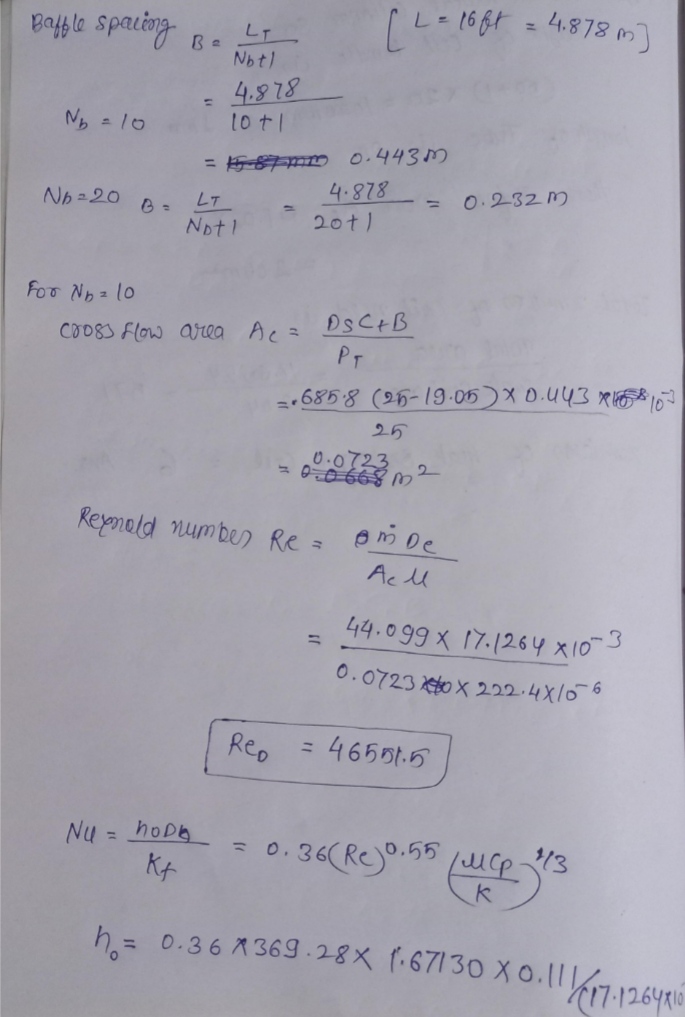 Baffle spacing B = LT / Nb+1 [L = 16ft = 4.878 m]
Nb = 10 = 4.878 / 10+1
= 0.443m
Nb=20 B = LT / Nb+1 = 4.878 / 20+1 = 0.232m
For Nb=10
cross flow area Ac = DsCtB / PT
= 685.8 (25-19.05) × 0.443 × 10^-3 / 25
= 0.0723 m^2
Reynold number Re = ṁ De / Ac μ
= 44.099 × 17.1264 × 10^-3 / 0.0723 × 222.4×10^-6
ReD = 46551.5
Nu = hoDh / Kf = 0.36(Re)^0.55 (μCp / K)^1/3
ho = 0.36 × 369.28 × 1.67130 × 0.111/(17.1264×10